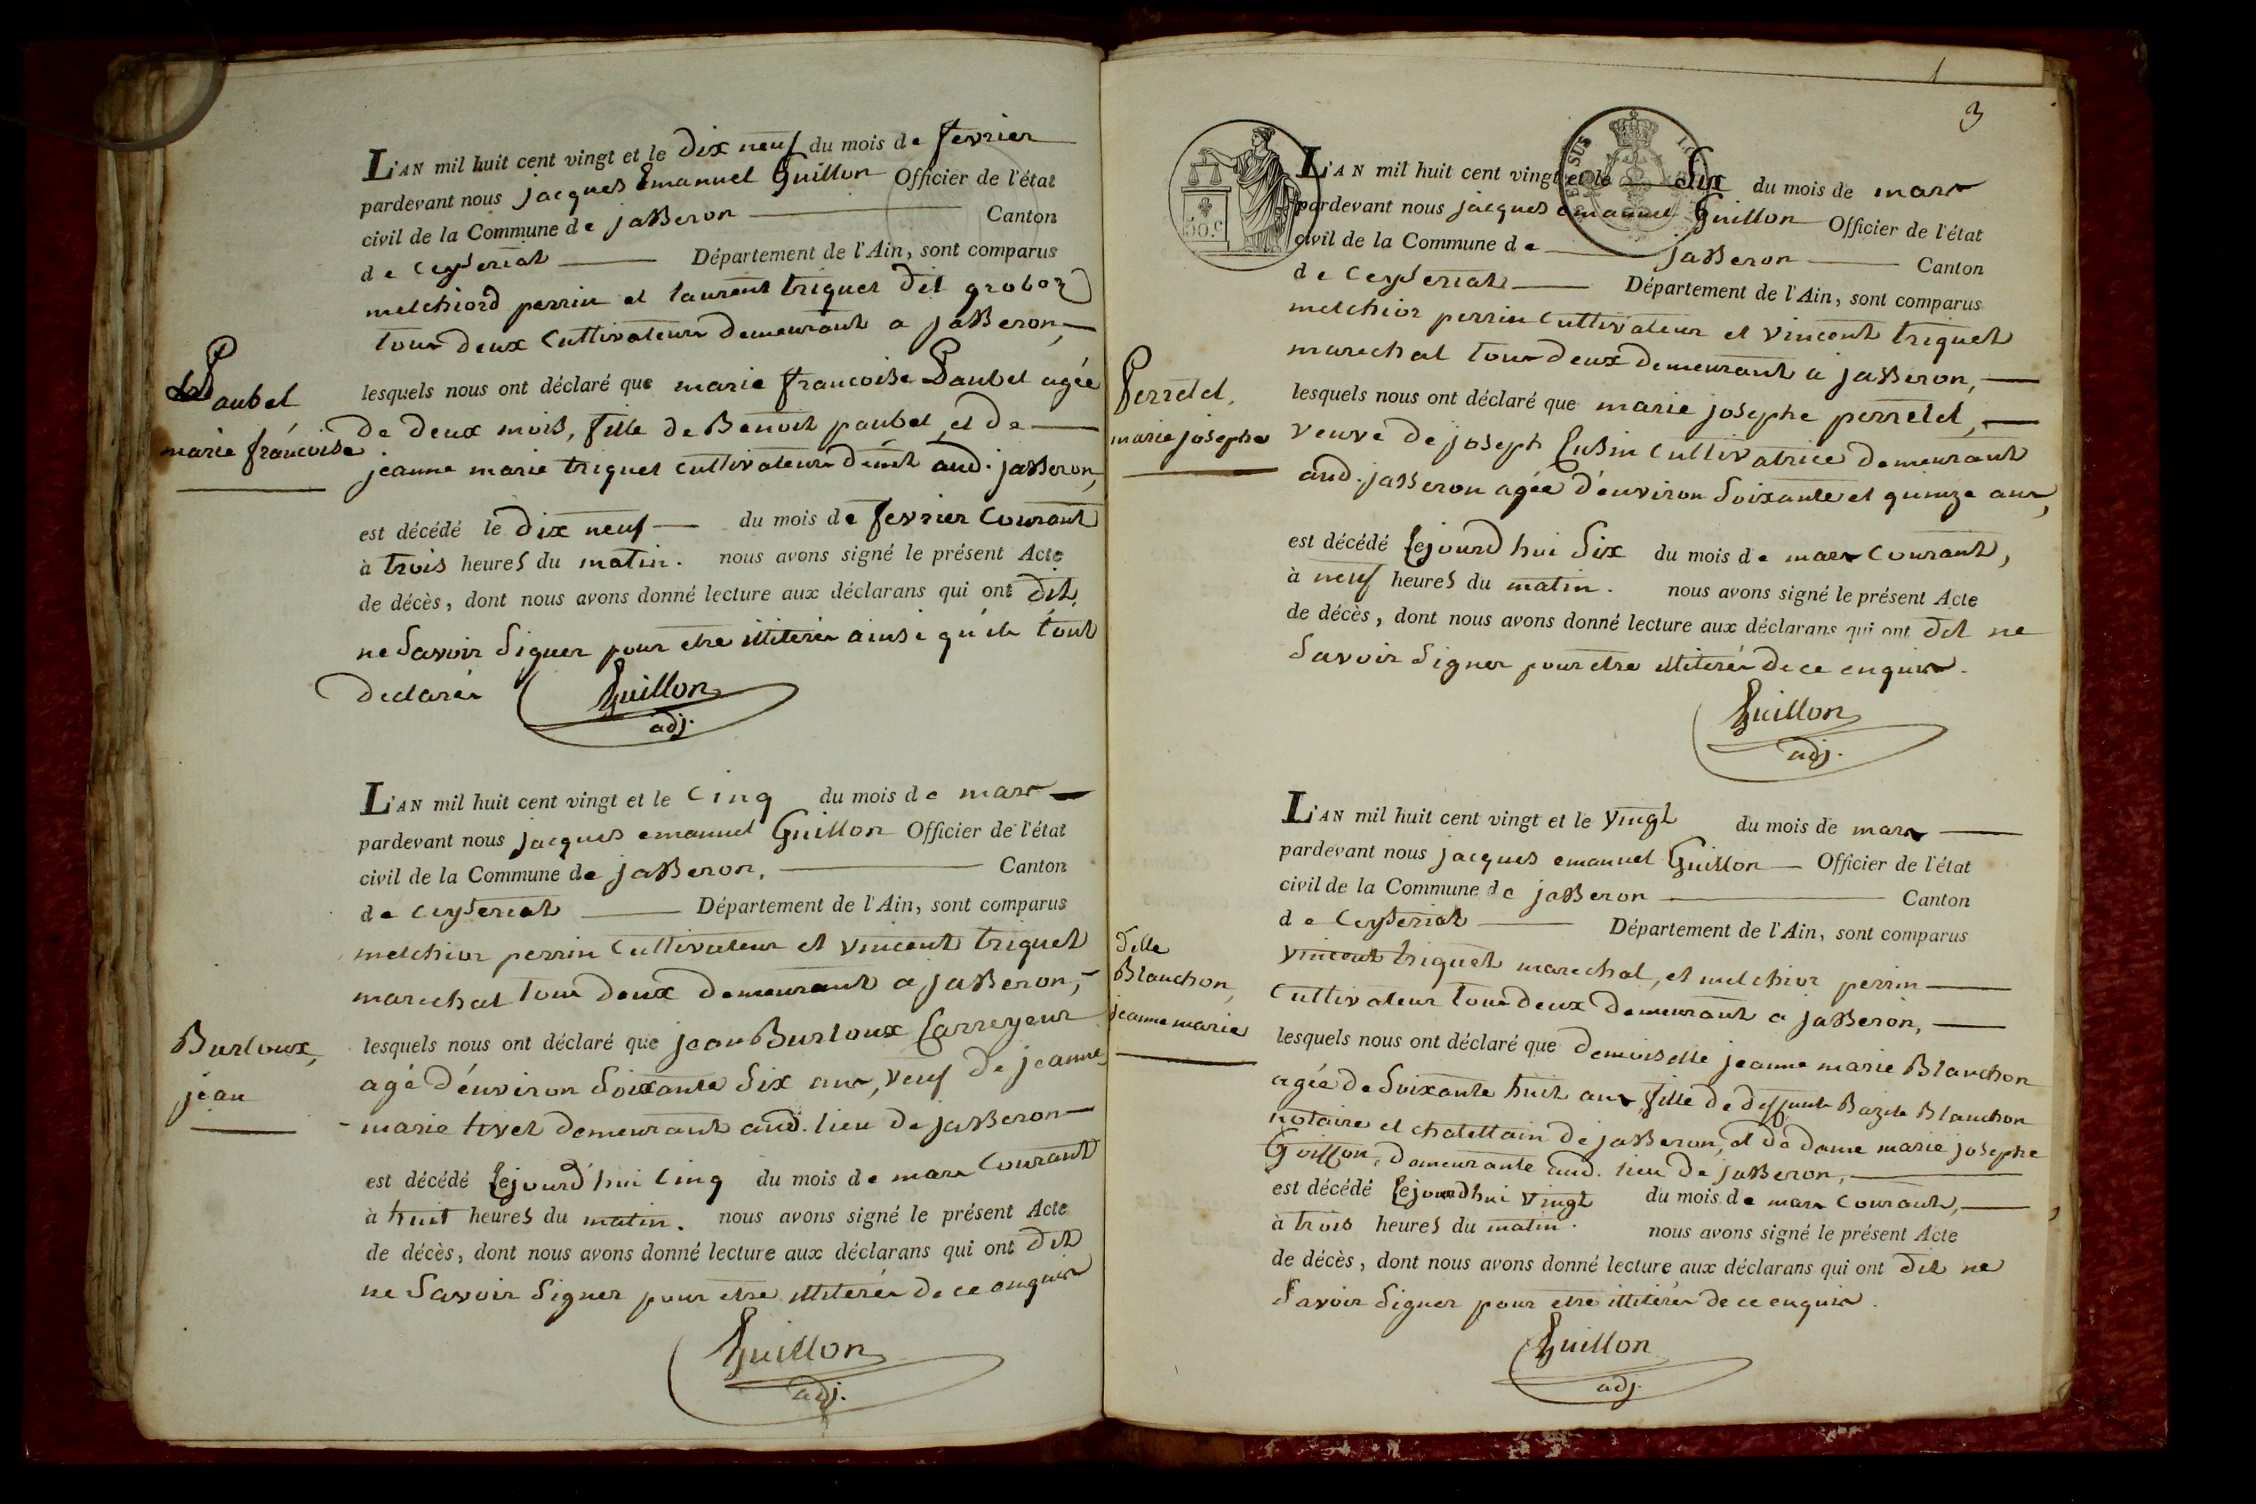 L'AN mil huit cent vingt et le dix neuf du mois de fevrier
pardevant nous jacques Emanuel Guillon Officier de l'état
civil de la Commune de jasseron Canton
de ceyseriat Département de l'Ain, sont comparus
melchiord perrin et laurent triquet dit groboz
tous deux cultivateurs demeurant a jasseron,
Paubel
marie françoise
lesquels nous ont déclaré que marie francoise Paubel agée
de deux mois, fille de Benoit paubel et de
jeanne marie triquet cultivateurs demt aud. jasseron,
est décédé le dix neuf du mois de fevrier courant
à trois heures du matin. nous avons signé le présent Acte
de décès, dont nous avons donné lecture aux déclarans qui ont dit
ne savoir signer pour etre illiterés ainsi qu'ils l'ont
declarés
Guillon
adj.
L'AN mil huit cent vingt et le cinq du mois de mars
pardevant nous jacques emanuel Guillon Officier de l'état
civil de la Commune de jasseron, Canton
de ceyseriat Département de l'Ain, sont comparus
melchior perrin cultivateur et vincent triquet
marechal tous deux demeurant a jasseron,
Burloux,
jean
lesquels nous ont déclaré que jean Burloux Carreyeur
agé d'environ soixante six ans, veuf de jeanne
marie tivet demeurant aud. lieu de jasseron
est décédé cejourd'hui cinq du mois de mars courant
à huit heures du matin. nous avons signé le présent Acte
de décès, dont nous avons donné lecture aux déclarans qui ont dit
ne savoir signer pour etre illiterés de ce enquis
Guillon
adj.
1
3
50.C
L'AN mil huit cent vingt et le six du mois de mars
pardevant nous jacques emanuel Guillon Officier de l'état
civil de la Commune de jasseron Canton
de Ceyseriat Département de l'Ain, sont comparus
melchior perrin cultivateur et vincent triquet
marechal tous deux demeurant a jasseron,
Perretet,
marie josephe
lesquels nous ont déclaré que marie josephe perretet,
veuve de joseph Cusin cultivatrice demeurant
aud. jasseron agée d'environ soixante et quinze ans,
est décédé cejourd hui six du mois de mars courant,
à neuf heures du matin. nous avons signé le présent Acte
de décès, dont nous avons donné lecture aux déclarans qui ont dit ne
savoir signer pour etre illiterés de ce enquis.
Guillon
adj.
L'AN mil huit cent vingt et le vingt du mois de mars
pardevant nous jacques emanuel Guillon Officier de l'état
civil de la Commune de jasseron Canton
de Ceyseriat Département de l'Ain, sont comparus
vincent triquet marechal, et melchior perrin
cultivateur tous deux demeurant a jasseron,
delle
Blanchon,
jeanne marie
lesquels nous ont déclaré que demoiselle jeanne marie Blanchon
agée de soixante huit ans, fille de deffunt Bazile Blanchon
notaire et chatellain de jasseron, et de dame marie josephe
Goiffon, demeurante aud. lieu de jasseron,
est décédé cejourdhui vingt du mois de mars courant,
à trois heures du matin. nous avons signé le présent Acte
de décès, dont nous avons donné lecture aux déclarans qui ont dit ne
savoir signer pour etre illiterés de ce enquis.
Guillon
adj.